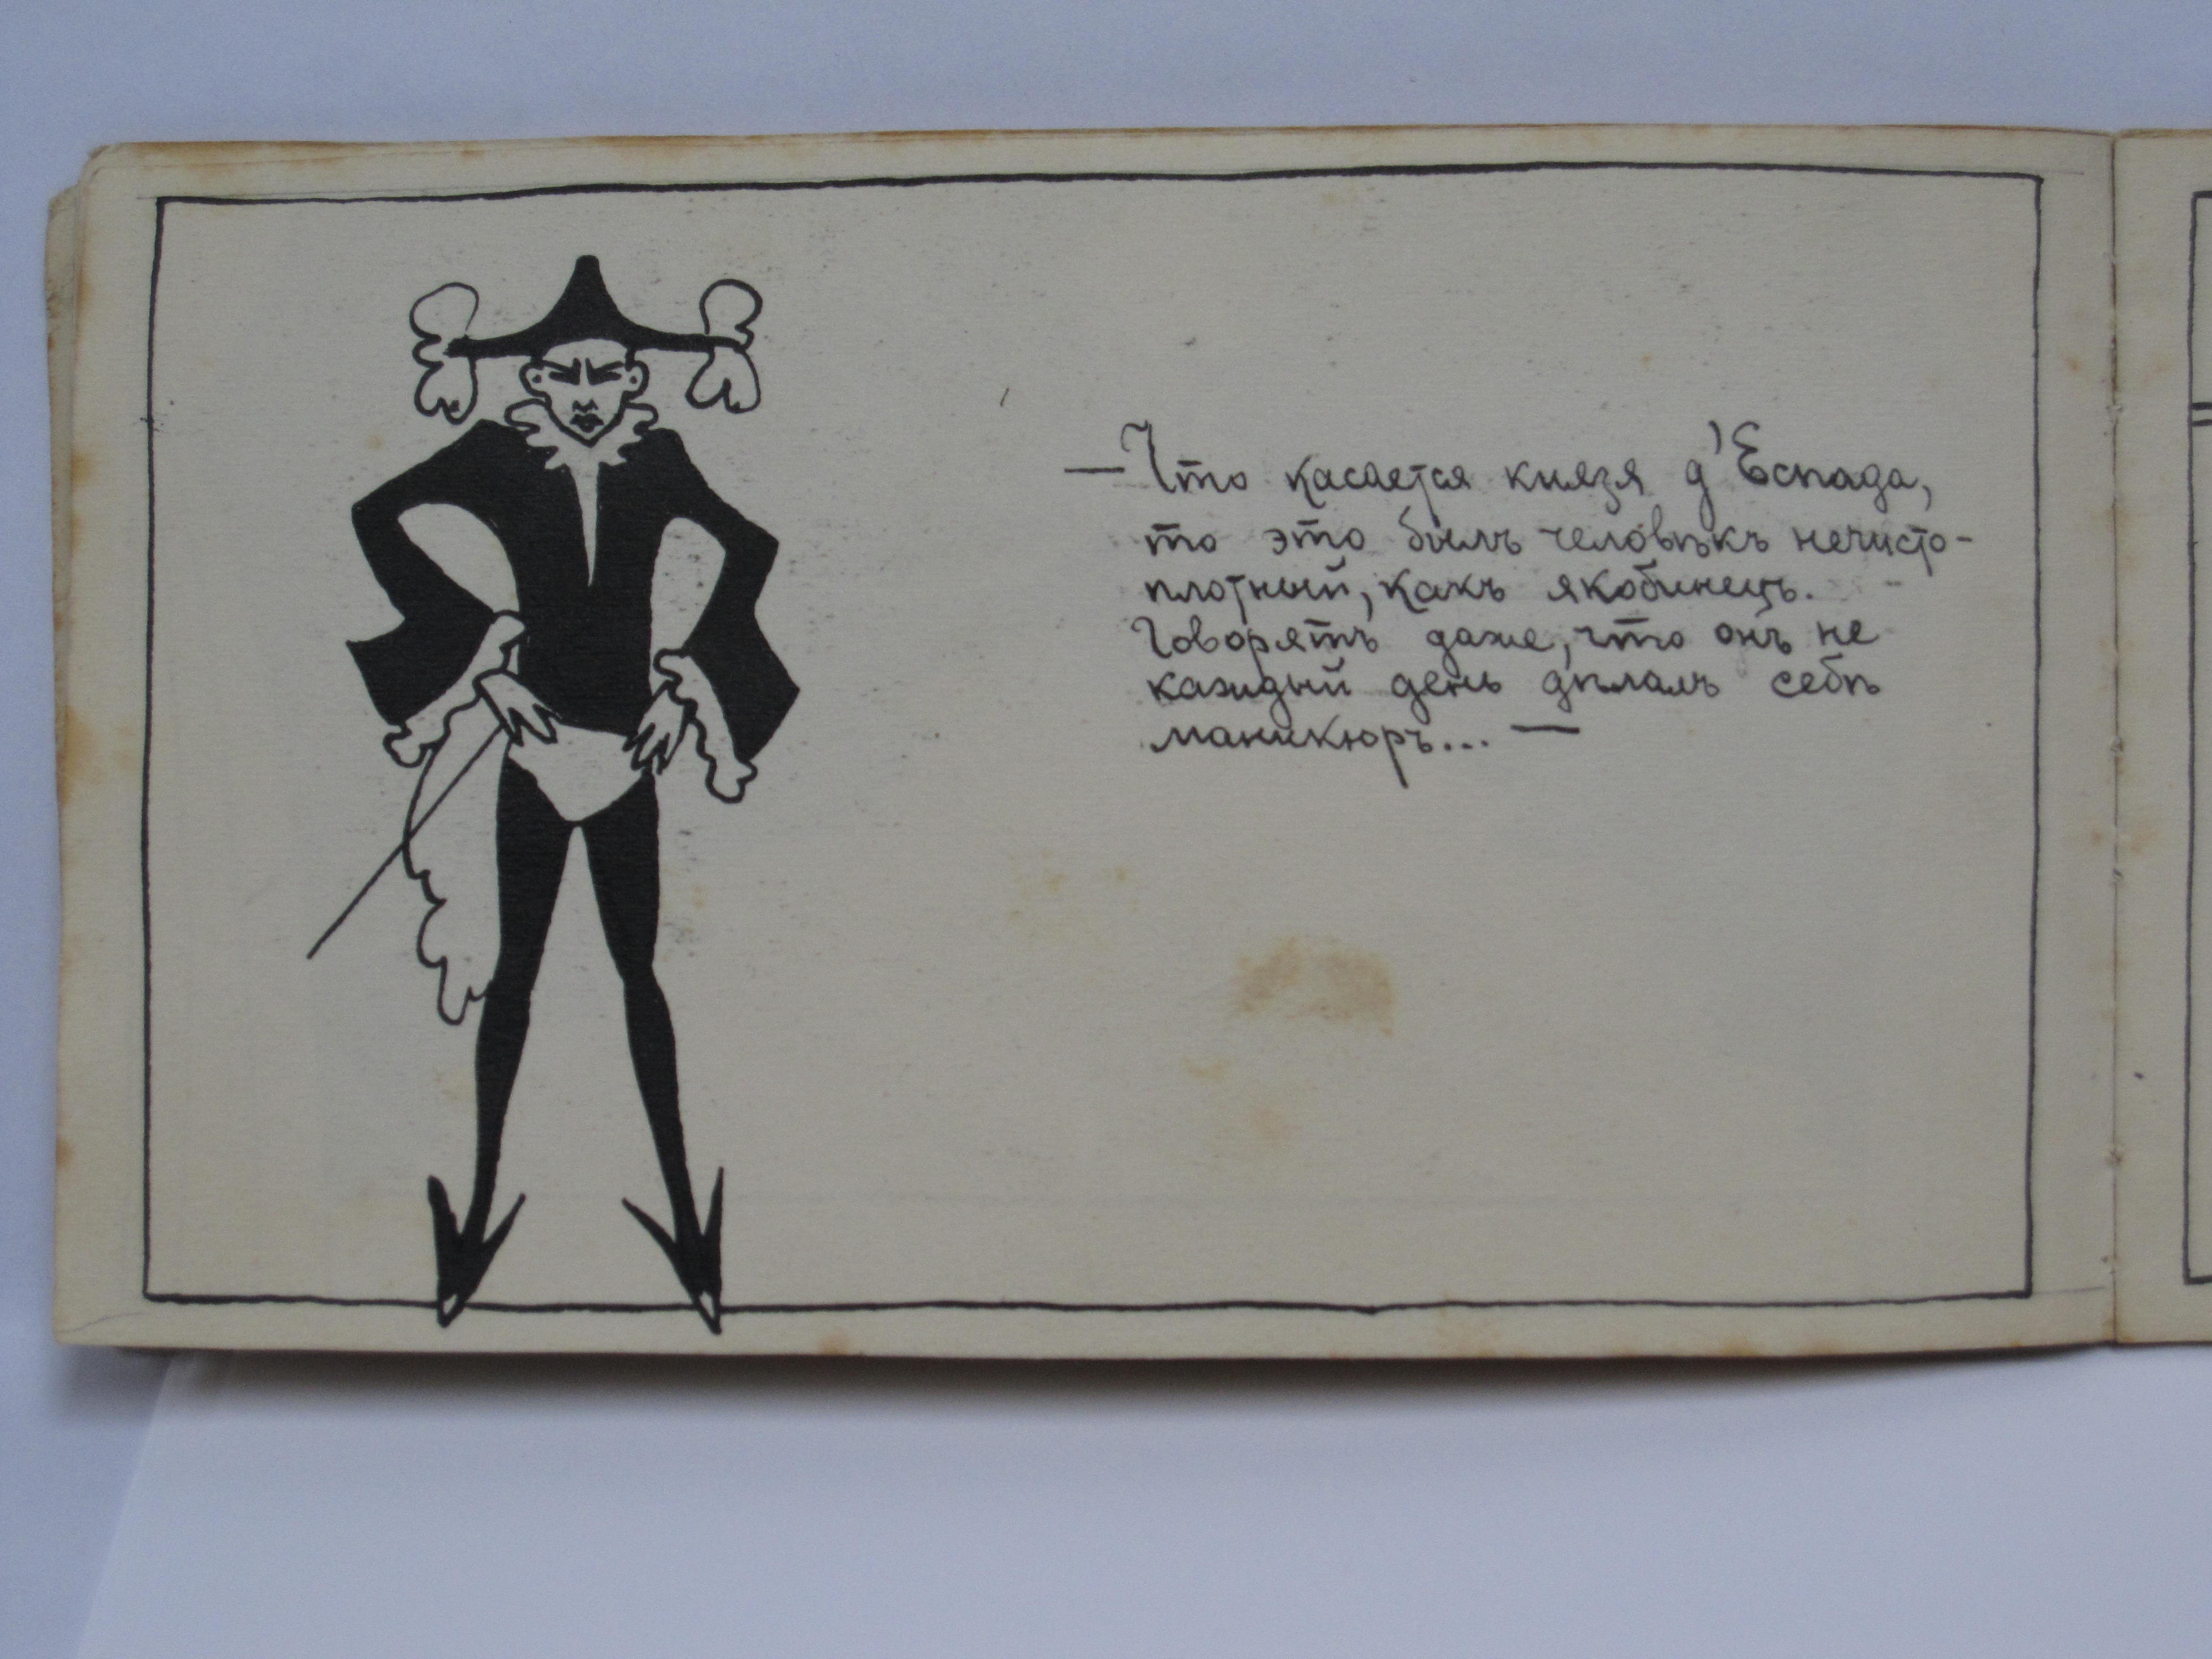 — Что касается князя д'Еспада,
то это былъ человѣкъ нечисто-
плотный, какъ якобинецъ.
Говорятъ даже, что онъ не
каждый день дѣлалъ себѣ
маникюръ... —